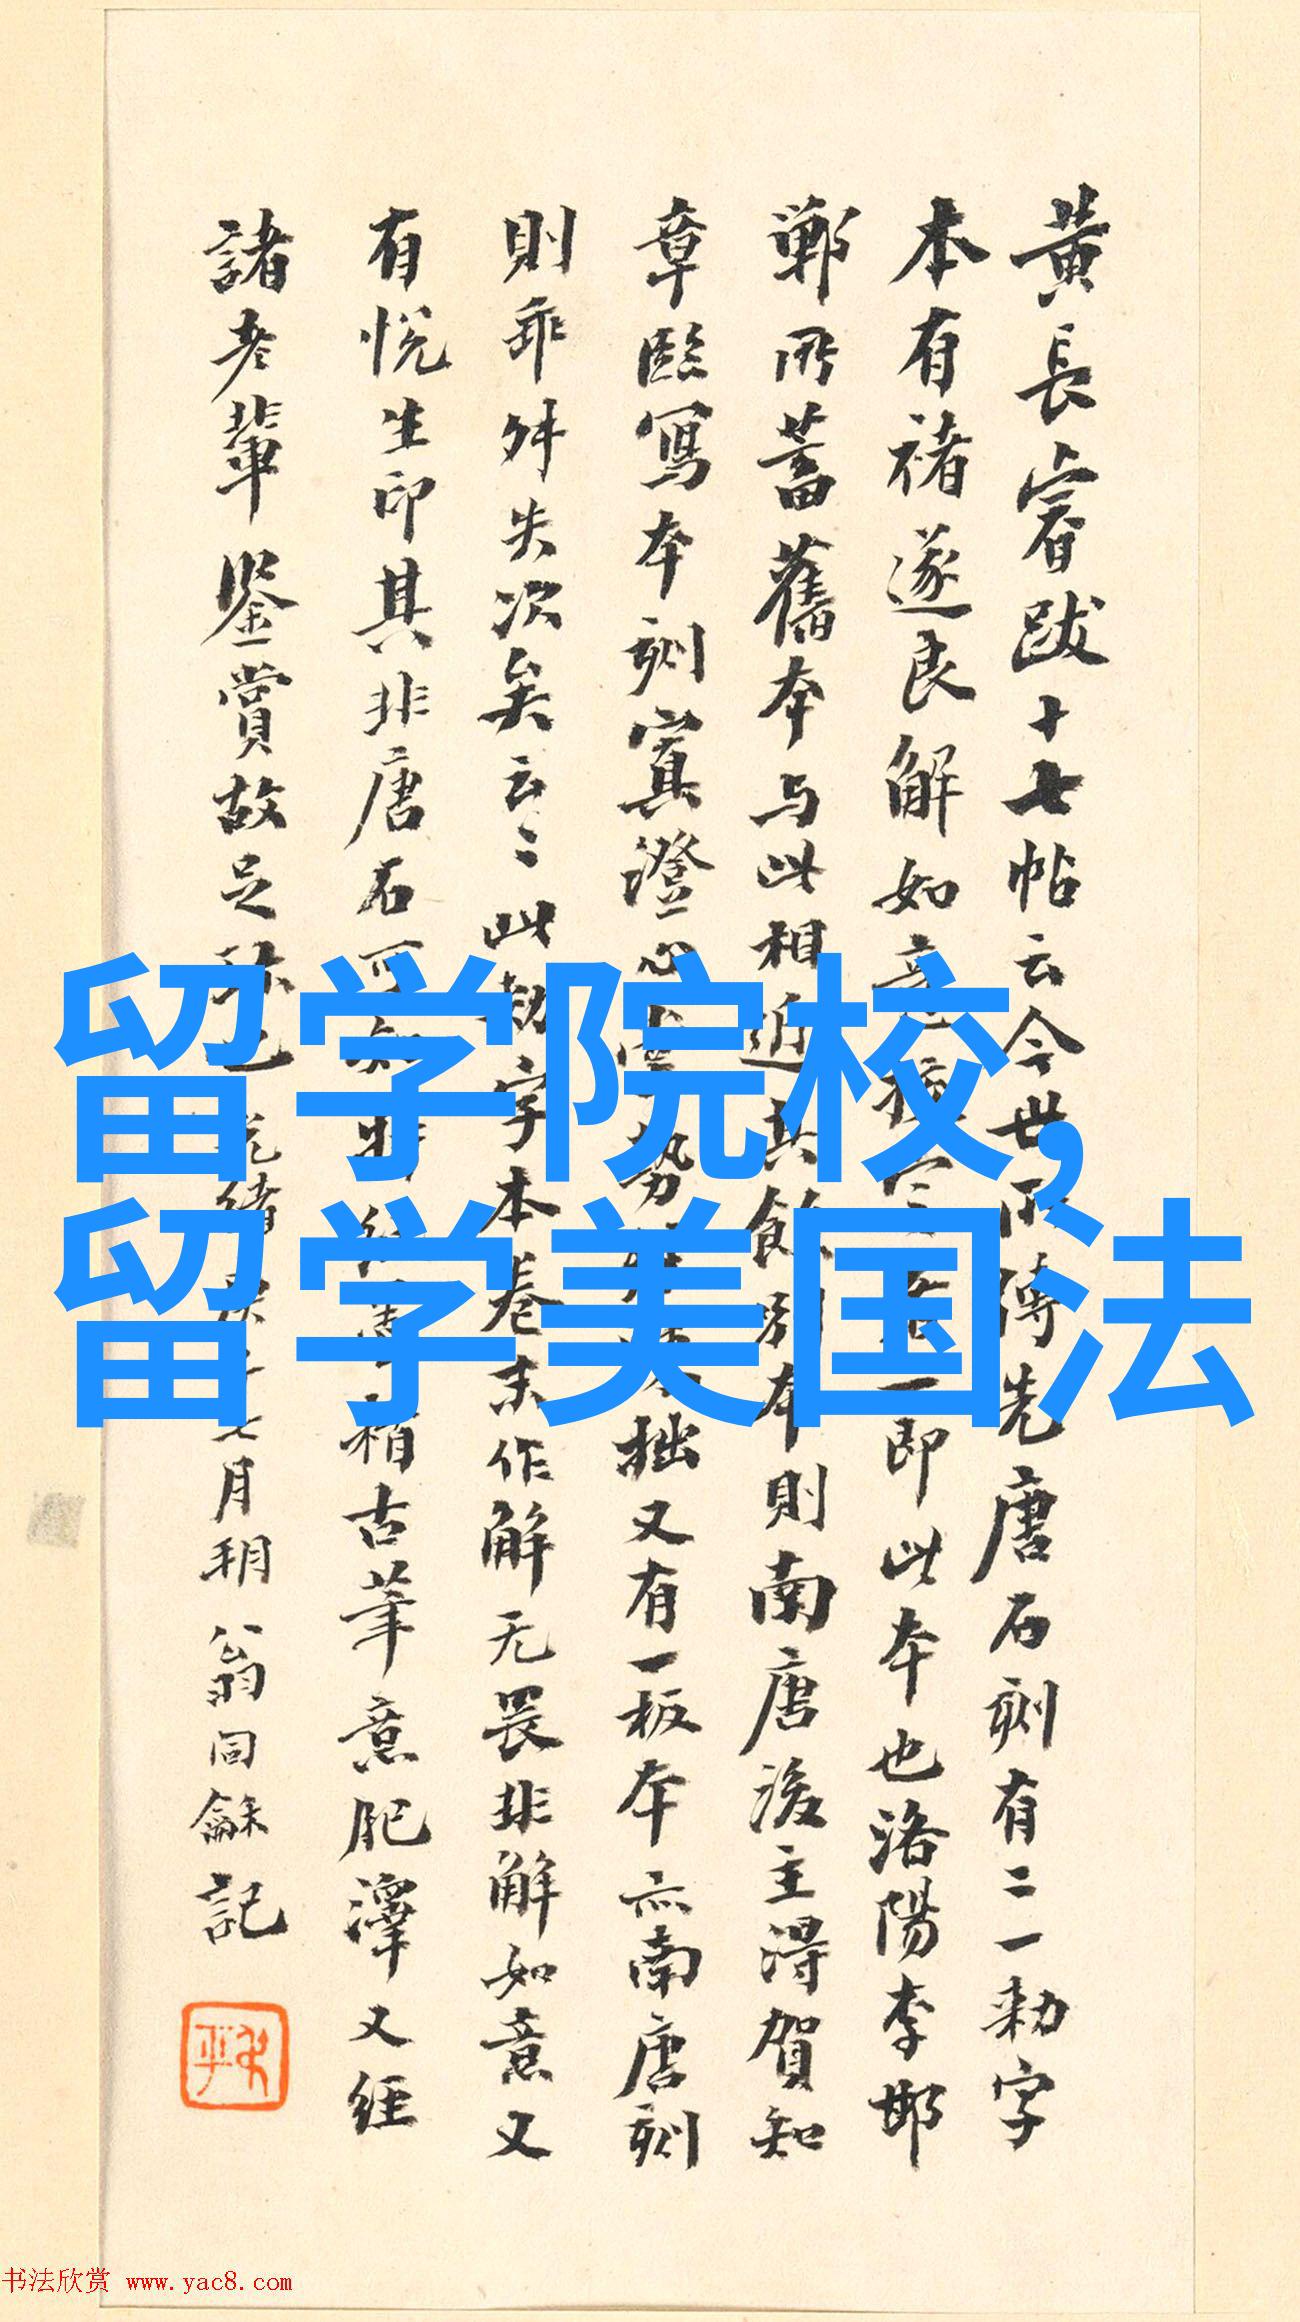 黄長睿跋十七帖云今世所傳先唐石刻有二一勑字
本有褚遂良解如意一即此本也洛陽李邯
鄲所蓄舊本与此相近其餘別本則南唐後主得賀知
章臨寫本刻寘澄心堂勢拙又有一板本亦南唐刻
則乖舛失次矣云〻此勑字本卷末作解无畏非解如意又
有悦生印其非唐石可知古茟意肥澤又經
諸老輩鑒賞故足珍也光緒庚七月朔翁同龢記
留学院校,
留学美国法
书法欣赏 www.yac8.com